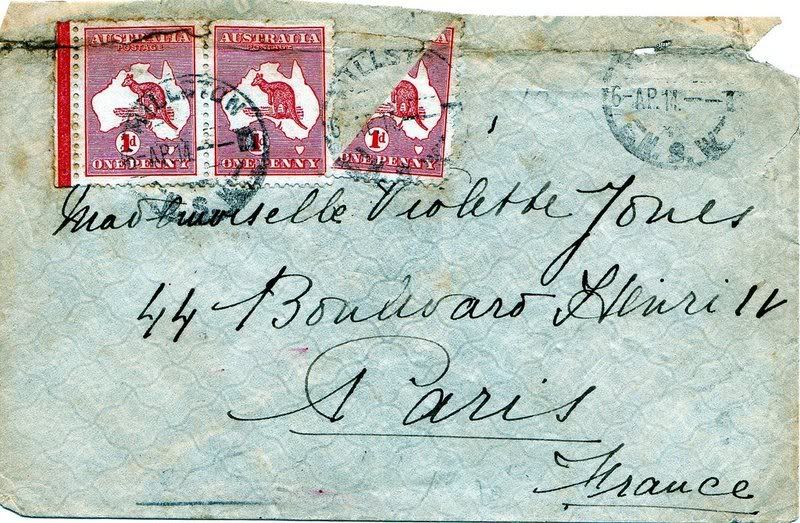 AUSTRALIA AUSTRALIA LIA
POSTAGE POSTAGE
1d 1d 1d
ONE PENNY ONE PENNY ONE PENNY
6-AP.14 N.S.W
Mademoiselle Violette Jones
44 Boulevard Henri IV
Paris
France